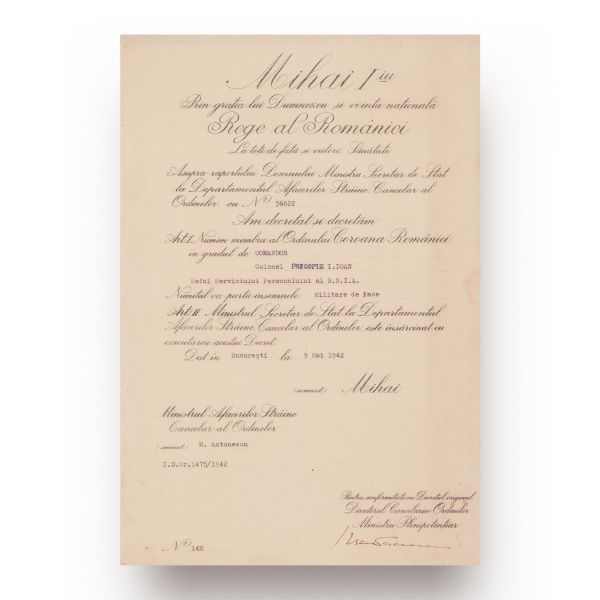 Mihai I iu
Prin grația lui Dumnezeu și voința națională
Rege al României
La toți de față și viitori, Sănătate
Asupra raportului Domnului Ministru Secretar de Stat
la Departamentul Afacerilor Străine, Cancelar al
Ordinelor, cu No 36822
Am decretat și decretăm
Art. I. Numim membru al Ordinului Coroana României
în gradul de COMANDOR
Colonel I.IOAN
Seful Serviciului Personalului al S.S.I.A.
Numitul va purta însemnele Militare de Pace
Art. II. Ministrul Secretar de Stat la Departamentul
Afacerilor Străine, Cancelar al Ordinelor, este însărcinat cu
executarea acestui Decret.
Dat în București la 9 Mai 1942
(semnat) Mihai
Ministrul Afacerilor Străine
Cancelar al Ordinelor
(semnat) M. Antonescu
I.D.Nr.1475/1942
Pentru conformitate cu Decretul original
Directorul Cancelariei Ordinelor
Ministru Plenipotențiar
No 14M